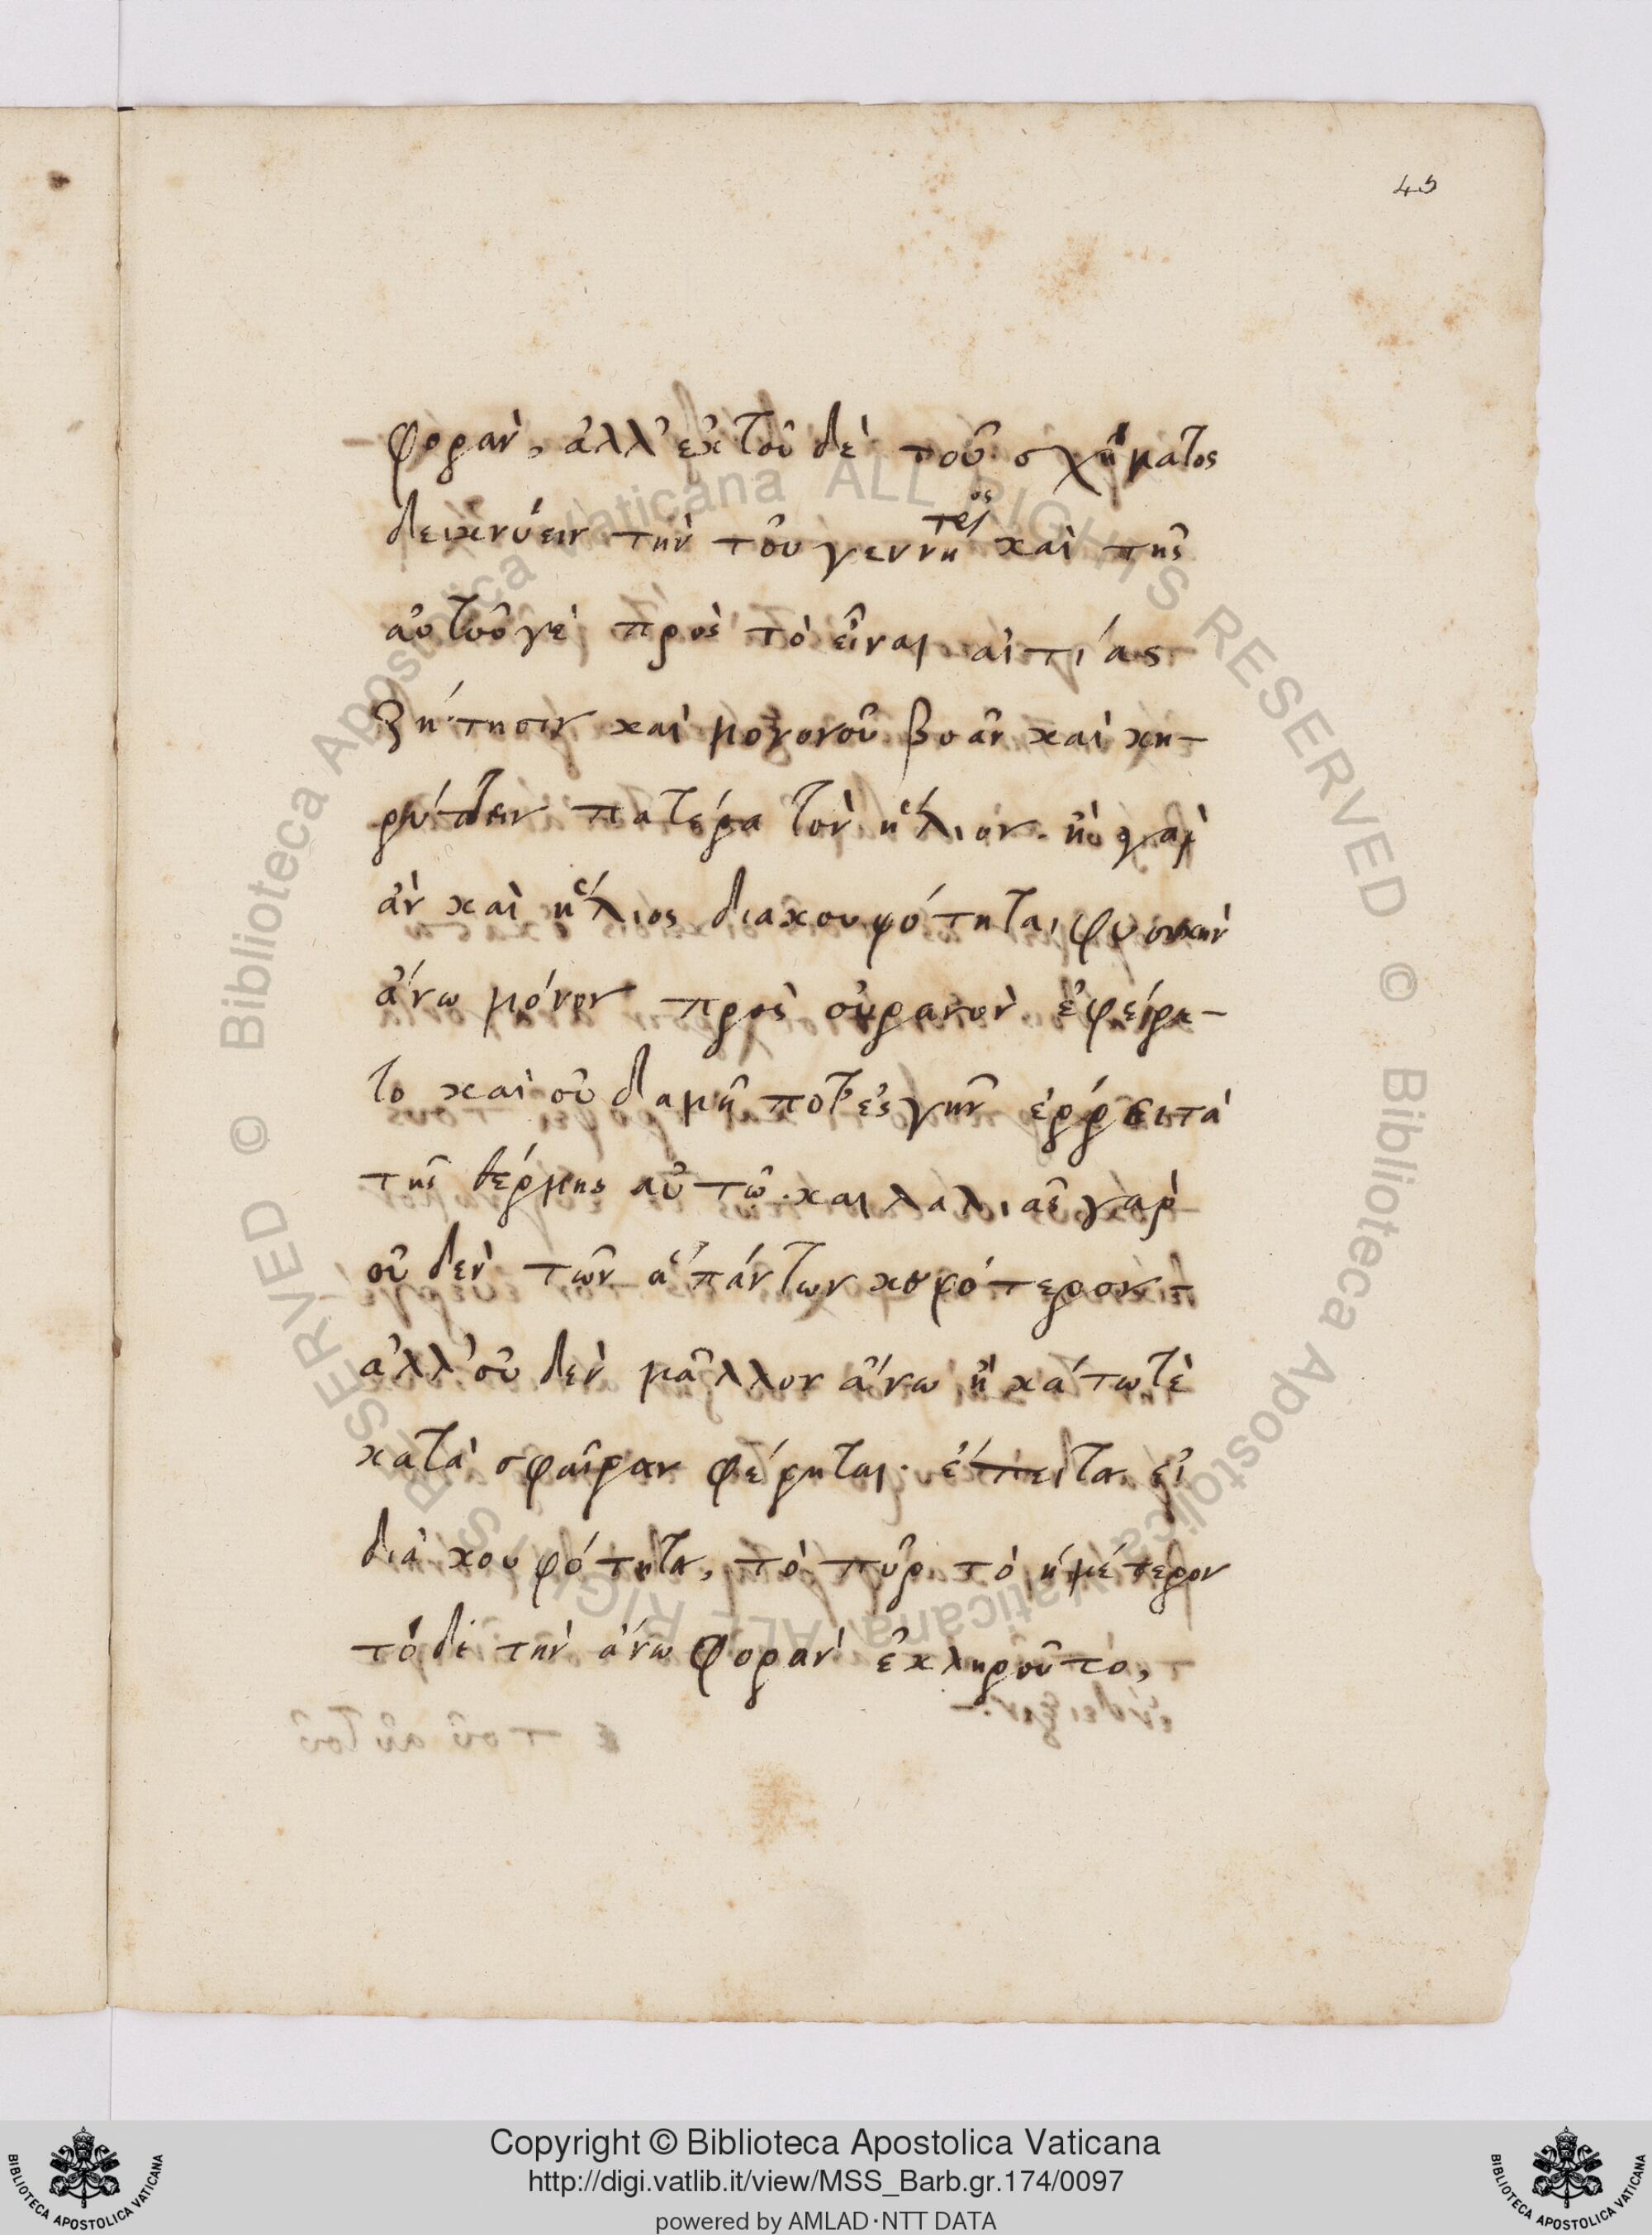 45
φοραν, ἀλλ' ἐκ τοῦ δὲ τοῦ σχήματος
δεικνύειν τὴν τοῦ γεννήτρος καὶ τῆς
αὐτοῦ γὲ πρὸς τὸ εἶναι αἰτίας
ζήτησιν καὶ μονονοῦ βοᾶν καὶ κη-
ρύττειν πατέρα τὸν ἥλιον. γαρ
ἀν καὶ ἥλιος διακουφότητα, φυσικὴν
ἄνω μόνον πρὸς οὐρανὸν ἐφέρε-
το καὶ οὐδαμῆ ποτ' ἐς γῆν ἐρρεῖτα
τῆς θέρμης αὐτῶ. και λαλιᾶς γαρ
οὐδὲν τῶν ἁπάντων κουφότερον
ἀλλ' οὐδὲν μᾶλλον ἄνω ἢ κάτω τὲ
κατὰ σφαῖραν φέρηται. ἔπειτα εἰ
διὰ κουφότητα, τὸ πῦρ τὸ ἡμέτερον
τόδε τὴν ἄνω φορὰν ἐκληροῦτο,
Copyright © Biblioteca Apostolica Vaticana
http://digi.vatlib.it/view/MSS_Barb.gr.174/0097
powered by AMLAD·NTT DATA
BIBLIOTECA APOSTOLICA VATICANA
BIBLIOTECA APOSTOLICA VATICANA
© Biblioteca Apostolica Vaticana ALL RIGHTS RESERVED
© Biblioteca Apostolica Vaticana ALL RIGHTS RESERVED